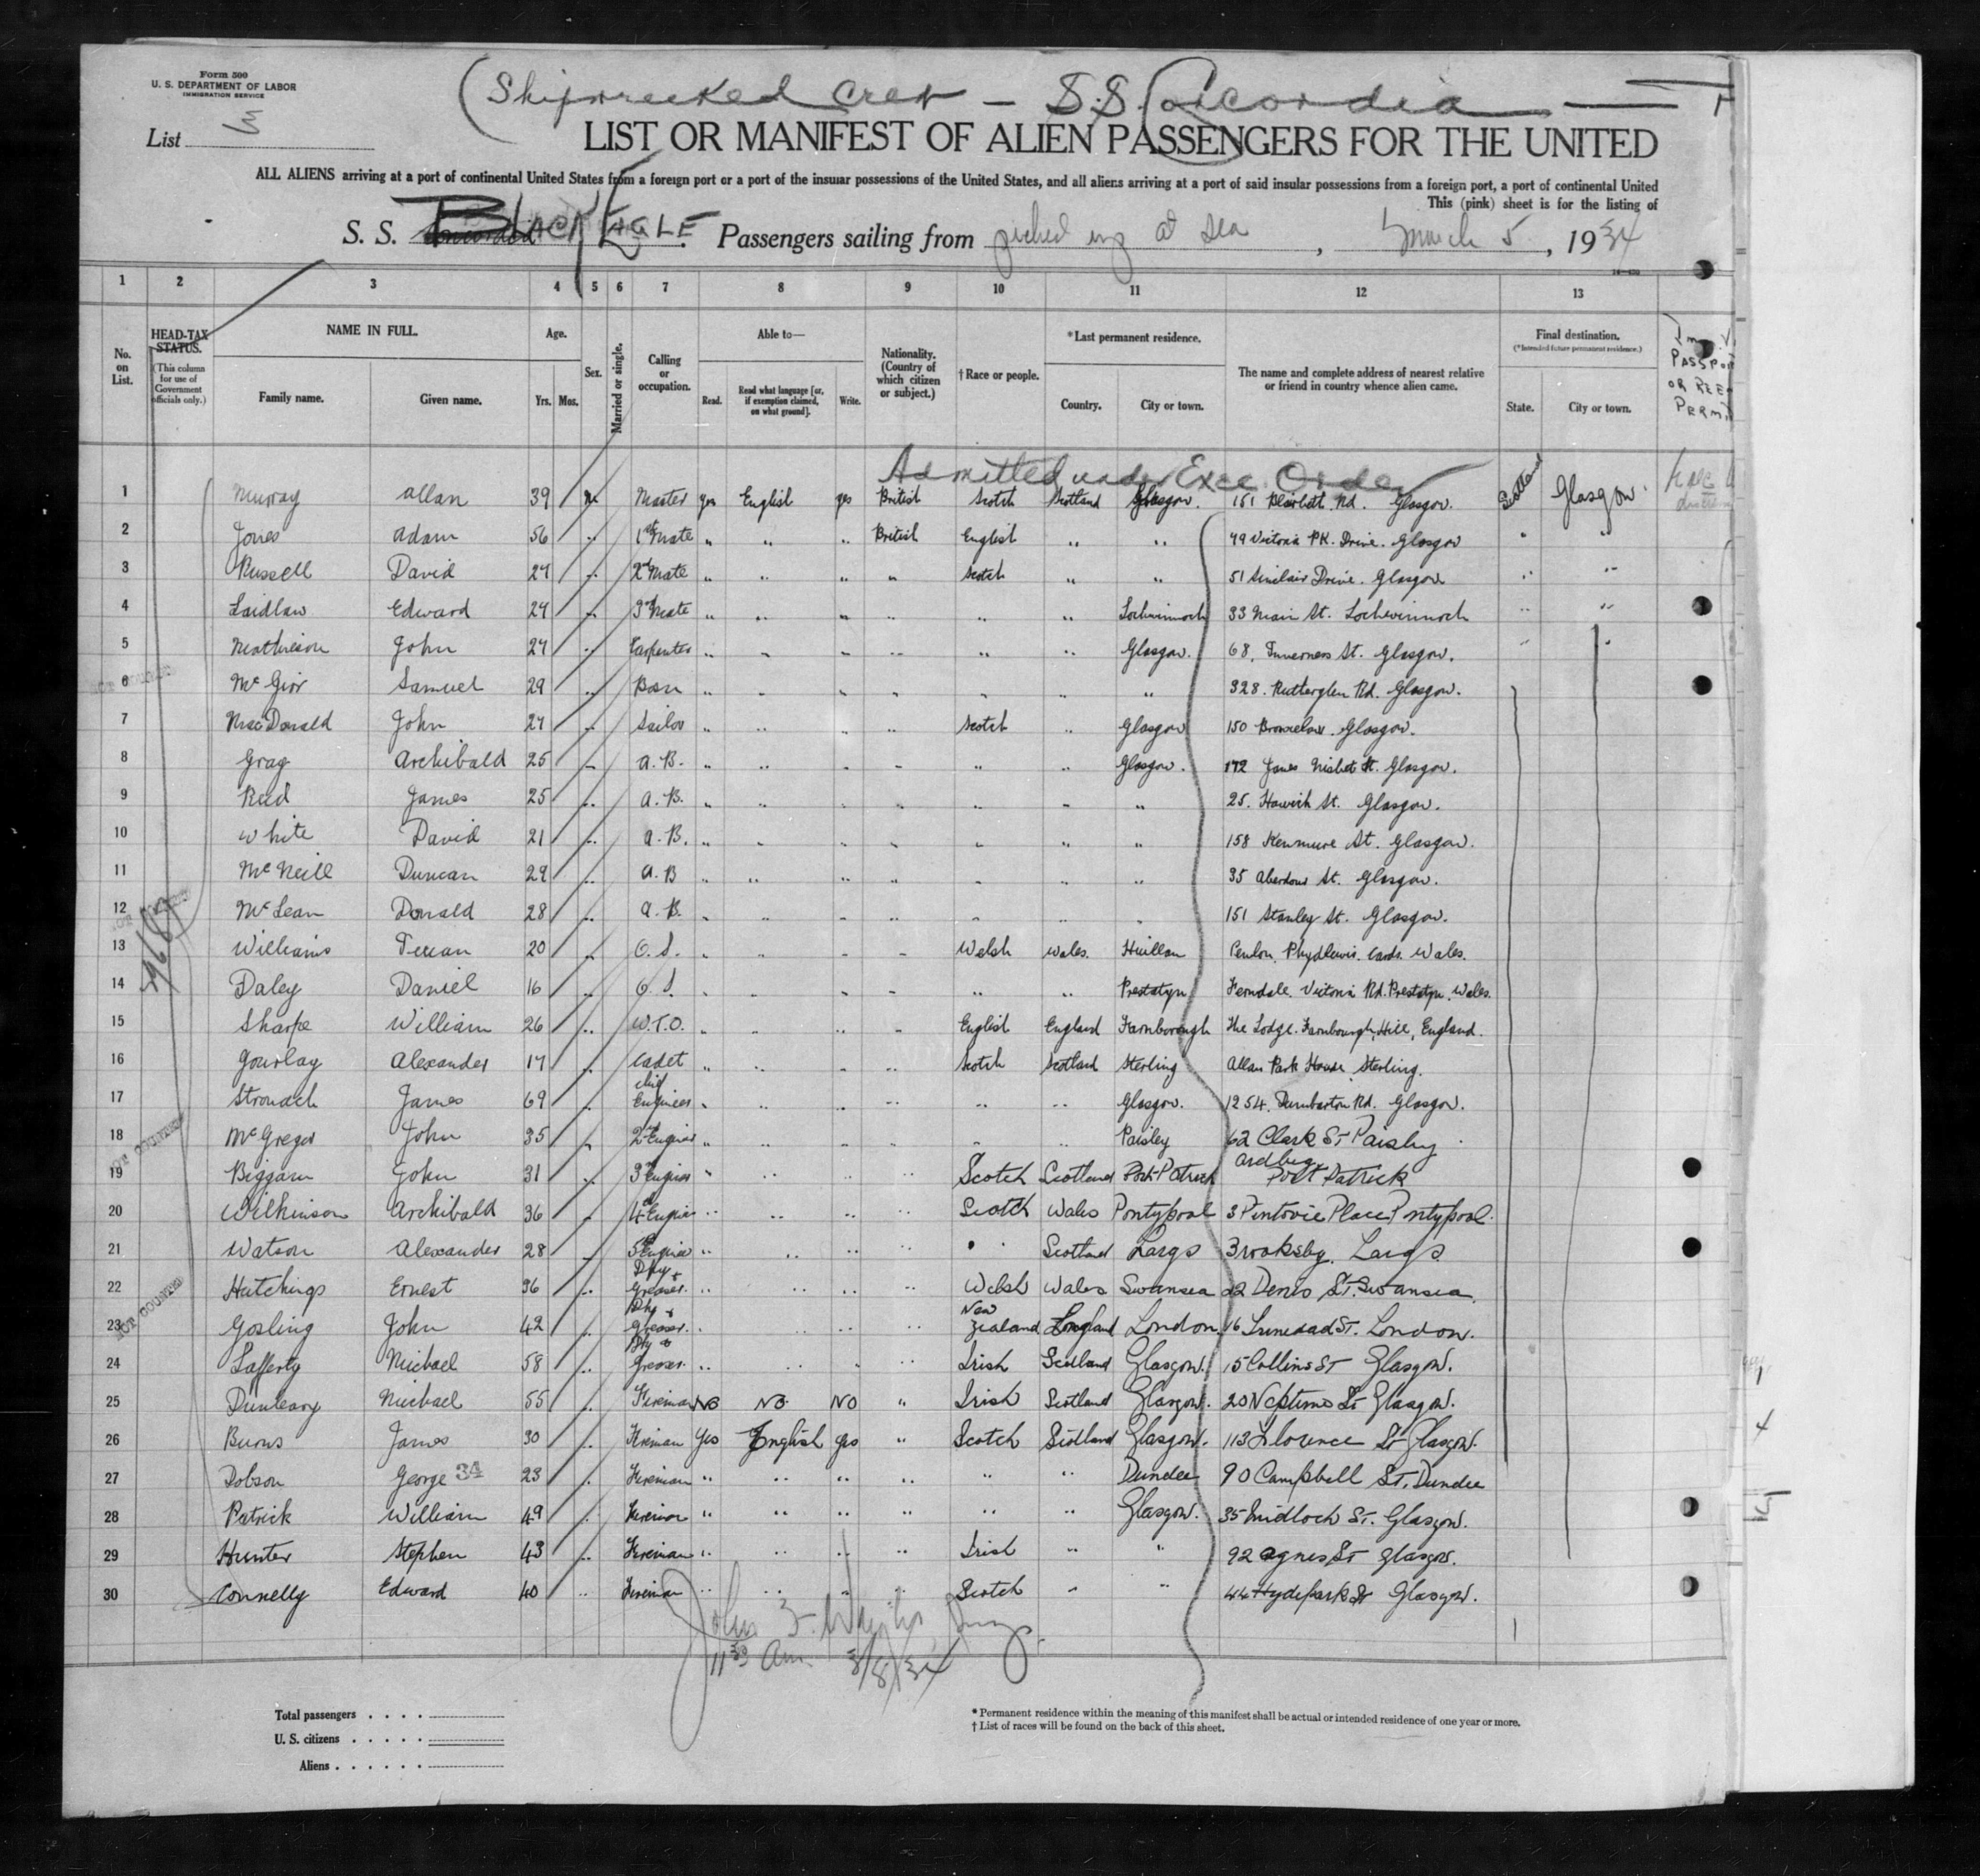 Form 500
U. S. DEPARTMENT OF LABOR
IMMIGRATION SERVICE
(Shipwrecked Crew — S.S. Concordia
List 3
LIST OR MANIFEST OF ALIEN PASSENGERS FOR THE UNITED
ALL ALIENS arriving at a port of continental United States from a foreign port or a port of the insular possessions of the United States, and all aliens arriving at a port of said insular possessions from a foreign port, a port of continental United
This (pink) sheet is for the listing of
S. S. BLACK EAGLE. Passengers sailing from picked up at sea, March 5, 1934
1 2 3 4 5 6 7 8 9 10 11 12 13
No. on List.
HEAD-TAX STATUS. (This column for use of Government officials only.)
NAME IN FULL. Family name. Given name.
Age. Yrs. Mos.
Sex.
Married or single.
Calling or occupation.
Able to— Read. Read what language [or, if exemption claimed, on what ground]. Write.
Nationality. (Country of which citizen or subject.)
†Race or people.
*Last permanent residence. Country. City or town.
The name and complete address of nearest relative or friend in country whence alien came.
Final destination. (*Intended future permanent residence.) State. City or town.
Admitted under Exec. Order
1 Murray Allan 39 m Master yes English yes British Scotch Scotland Glasgow. 151 Rd. Glasgow. Scotland Glasgow.
2 Jones Adam 56 " 1st Mate " " " British English " " 49 Victoria PK. Drive. Glasgow " "
3 Russell David 27 " 2nd Mate " " " " Scotch " " 51 Sinclair Drive. Glasgow " "
4 Laidlaw Edward 27 " 3rd Mate " " " " " " Lochwinnoch 33 Main St. Lochwinnoch " "
5 Mathieson John 27 " Carpenter " " " " " " Glasgow. 68, Inverness St. Glasgow. " "
6 McGivr Samuel 29 " Bosn " " " " " " " 328. Rutherglen Rd. Glasgow.
7 MacDonald John 27 " Sailor " " " " Scotch " Glasgow 150 Glasgow.
8 Gray Archibald 25 " A.B. " " " " " " Glasgow. 172 James Nisbet St. Glasgow.
9 Reid James 25 " A.B. " " " " " " " 25. Hawick St. Glasgow.
10 White David 21 " A.B. " " " " " " " 158 Kenmure St. Glasgow.
11 McNeill Duncan 29 " A.B " " " " " " " 35 Aberdour St. Glasgow.
12 McLean Donald 28 " A.B. " " " " " " " 151 Stanley St. Glasgow.
13 Williams 20 " O.S. " " " " Welsh Wales. Penlon. Rhydlewis. Cards. Wales.
14 Daley Daniel 16 " O.S. " " " " " " Prestatyn Ferndale. Victoria Rd. Prestatyn. Wales.
15 Sharpe William 26 " W.T.O. " " " " English England Farnborough The Lodge. Farnborough Hill, England.
16 Gourlay Alexander 17 " Cadet " " " " Scotch Scotland Sterling Allan Park House Sterling.
17 Stronach James 69 " Chief Engineer " " " " " " Glasgow. 1254. Dumbarton Rd. Glasgow.
18 McGregor John 35 " 2nd Engineer " " " " " " Paisley 62 Clark St Paisley
19 Biggam John 31 " 3rd Engineer " " " " Scotch Scotland Port Patrick Ardbeg Port Patrick
20 Wilkinson Archibald 36 " 4th Engineer " " " " Scotch Wales Pontypool 3 Place Pontypool.
21 Watson Alexander 28 " 5th Engineer " " " " " Scotland Largs Brooksby. Largs
22 Hutchings Ernest 36 " Dky & Greaser. " " " " Welsh Wales Swansea 22 St. Swansea.
23 Gosling John 42 " Dky & Greaser. " " " " New Zealand England London. 16 Trinidad St. London.
24 Lafferty Michael 58 " Dky & Greaser. " " " " Irish Scotland Glasgow. 15 Collins St Glasgow.
25 Dunleavy Michael 55 " Fireman No No. No " Irish Scotland Glasgow. 20 Neptune St Glasgow.
26 Burns James 30 " Fireman Yes English yes " Scotch Scotland Glasgow. 113 Florence St Glasgow.
27 Dobson George 34 23 " Fireman " " " " " " Dundee 90 Campbell St. Dundee
28 Patrick William 49 " Fireman " " " " " " Glasgow. 35 Midloch St. Glasgow.
29 Hunter Stephen 43 " Fireman " " " " Irish " " 92 Agnes St Glasgow.
30 Connelly Edward 40 " Fireman " " " " Scotch " " 44 Hydepark St Glasgow.
NOT COUNTED
11 30 Am. 3/8/34
Total passengers . . . .
U. S. citizens . . . . .
Aliens . . . . . .
* Permanent residence within the meaning of this manifest shall be actual or intended residence of one year or more.
† List of races will be found on the back of this sheet.